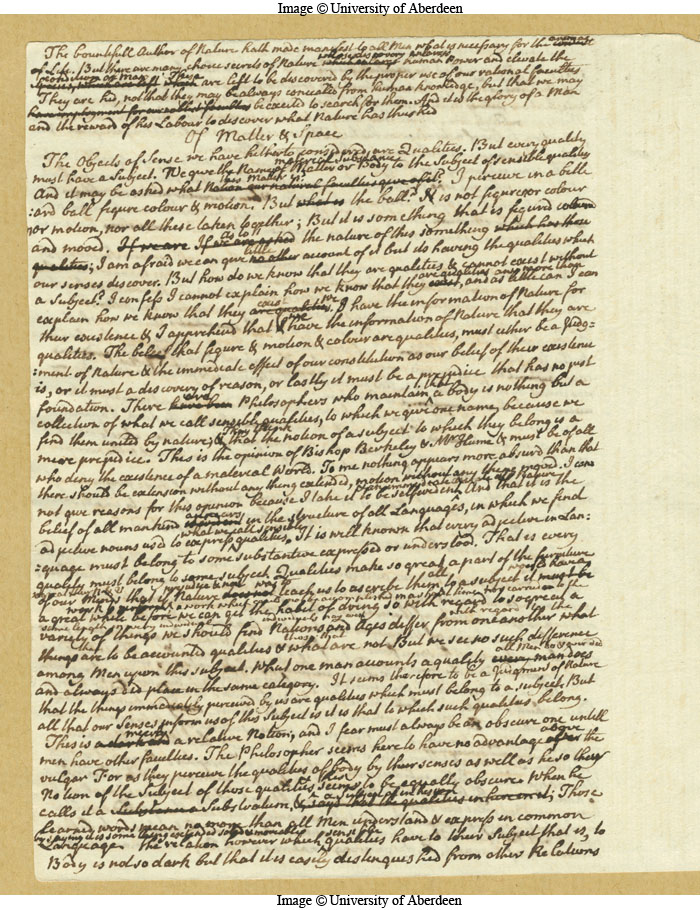 Image © University of Aberdeen
The bountifull Author of Nature hath made manifest to all Men what is necessary for the
of Life. But there are many choice secrets of Nature human Power and elevate the
are left to be discovered by the proper use of our rational faculties
They are hid, not that they may be always concealed from human knowledge, but that we may
be excited to search for them. And it is the glory of a Man
and the reward of his Labour to discover what Nature has thus hid
Of Matter & Space
The Objects of Sense we have hitherto considered are Qualities. But every quality
must have a Subject. We give the Name of material Substance Matter or Body to the Subject of sensible quality
And it may be asked what this Matter is? I perceive in a bille
:ard ball figure colour & motion. But the ball is not figure nor colour
nor motion, nor all these taken together; But it is something that is figurd
and moved. As to the nature of this something
I am afraid we can give little account of it but its having the qualities which
our senses discover. But how do we know that they are qualities & cannot exist without
a Subject? I confess I cannot explain how we know that they and as little can I can
explain how we know that they exist. I have the information of Nature for
their existence & I apprehend that I have the information of Nature that they are
qualities. The belief that figure & motion & colour are qualities, must either be a Judg-
:ment of Nature & the immediate effect of our constitution as our belief of their existence
is, or it must a discovery of reason, or lastly it must be a prejudice that has no just
foundation. There are Philosophers who maintain that a body is nothing but a
collection of what we call sensible qualities, to which we give one name, because we
find them united by nature; & that the notion of a subject to which they belong is a
mere prejudice. This is the opinion of Bishop Berkeley & Mr Hume & must be of all
who deny the existence of a material World. To me nothing appears more absurd than that
there should be extension without any thing extended, motion without any thing moved. I can
not give reasons for this opinion because I take it to be self evident, And that it is the
belief of all mankind appears in the structure of all Languages, in which we find
adjective nouns used to express what we call sensible qualities, It is well known that every adjective in Lan:
:guage must belong to some substantive expressed or understood. That is every
quality must belong to some subject. Qualities make so great a part of the furniture
of our Minds that if Nature teach us to ascribe them to a subject
a great while before we can get the habit of doing so with regard to so great a
variety of things we should find Nations and Ages differ from one another what
things are to be accounted qualities & what are not But we see no such difference
among Men upon this subject. What one man accounts a quality all Men do & ever did
and always did place in the same category. It seems therefore to be a Judgment of Nature
that the things immediately perceived by us are qualities which must belong to a subject, But
all that our Senses inform us of this Subject is it is that to which such qualities belong.
This is a relative Notion; and I fear must always be an obscure one untill
men have other faculties. The Philosopher seems here to have no advantage above the
vulgar For as they perceive the qualities of body by their senses as well as he so their
Notion of the Subject of those qualities seems to be equally obscure When he
calls it a Substratum, & a subject of inhesion; Those
learned words mean no more than all Men understand & express in common
Language. The relation however which sensible qualities have to their Subject that is, to
Body is not so dark but that it is easily distinguished from other Relations
Image © University of Aberdeen